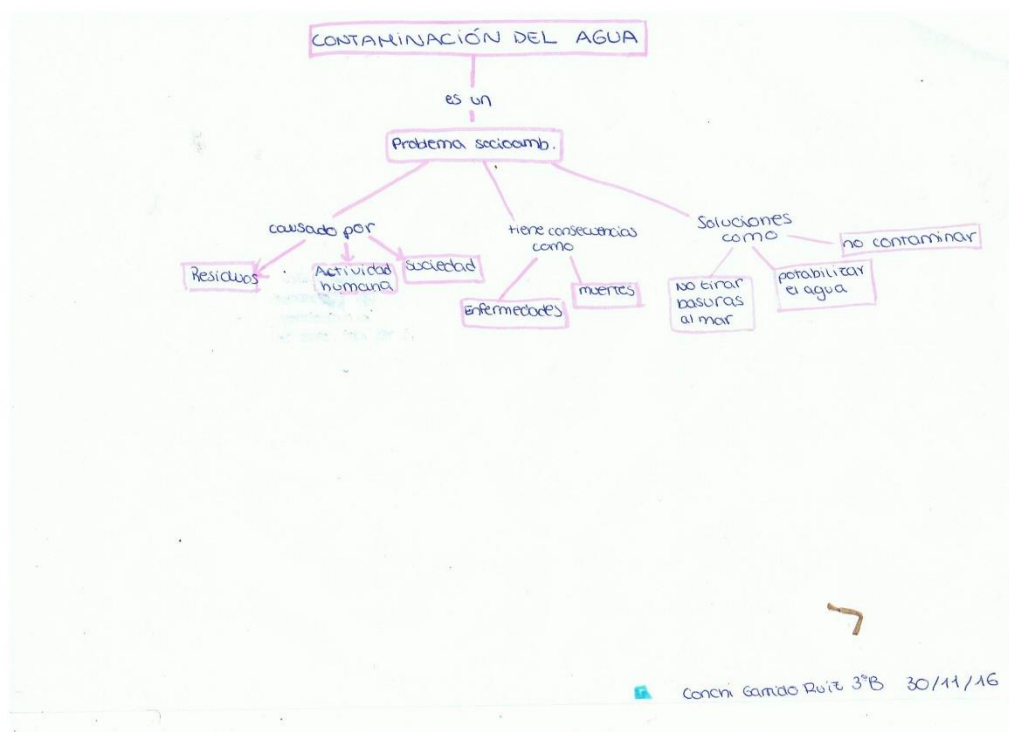 CONTAMINACIÓN DEL AGUA
es un
Problema socioamb.
causado por
Residuos
Actividad
humana
sociedad
tiene consecuencias
como
Enfermedades
muertes
Soluciones
como
No tirar
basuras
al mar
potabilizar
el agua
no contaminar
Conchi Garrido Ruiz 3ºB 30/11/16